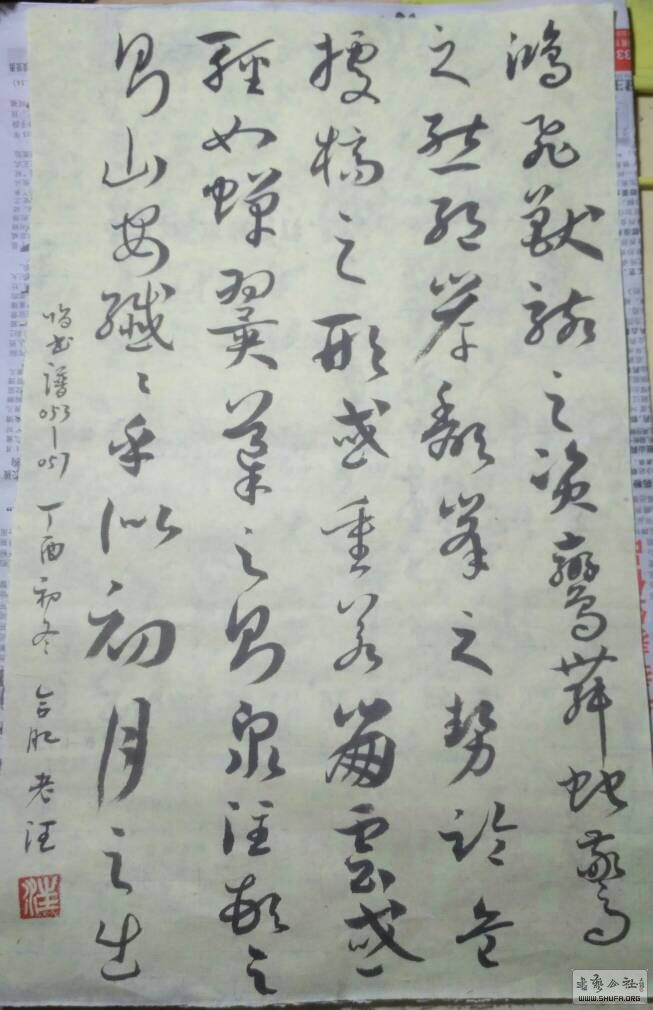 鴻飛獸駭之資鸞舞蛇驚
之態絕岸頹峯之勢臨危
據槁之形或重若崩雲或
輕如蟬翼導之則泉注頓之
則山安纖〻乎似初月之出
临书譜053—057 丁酉初冬 合肥 老汪
汪
書藝公社
WWW.SHUFA.ORG